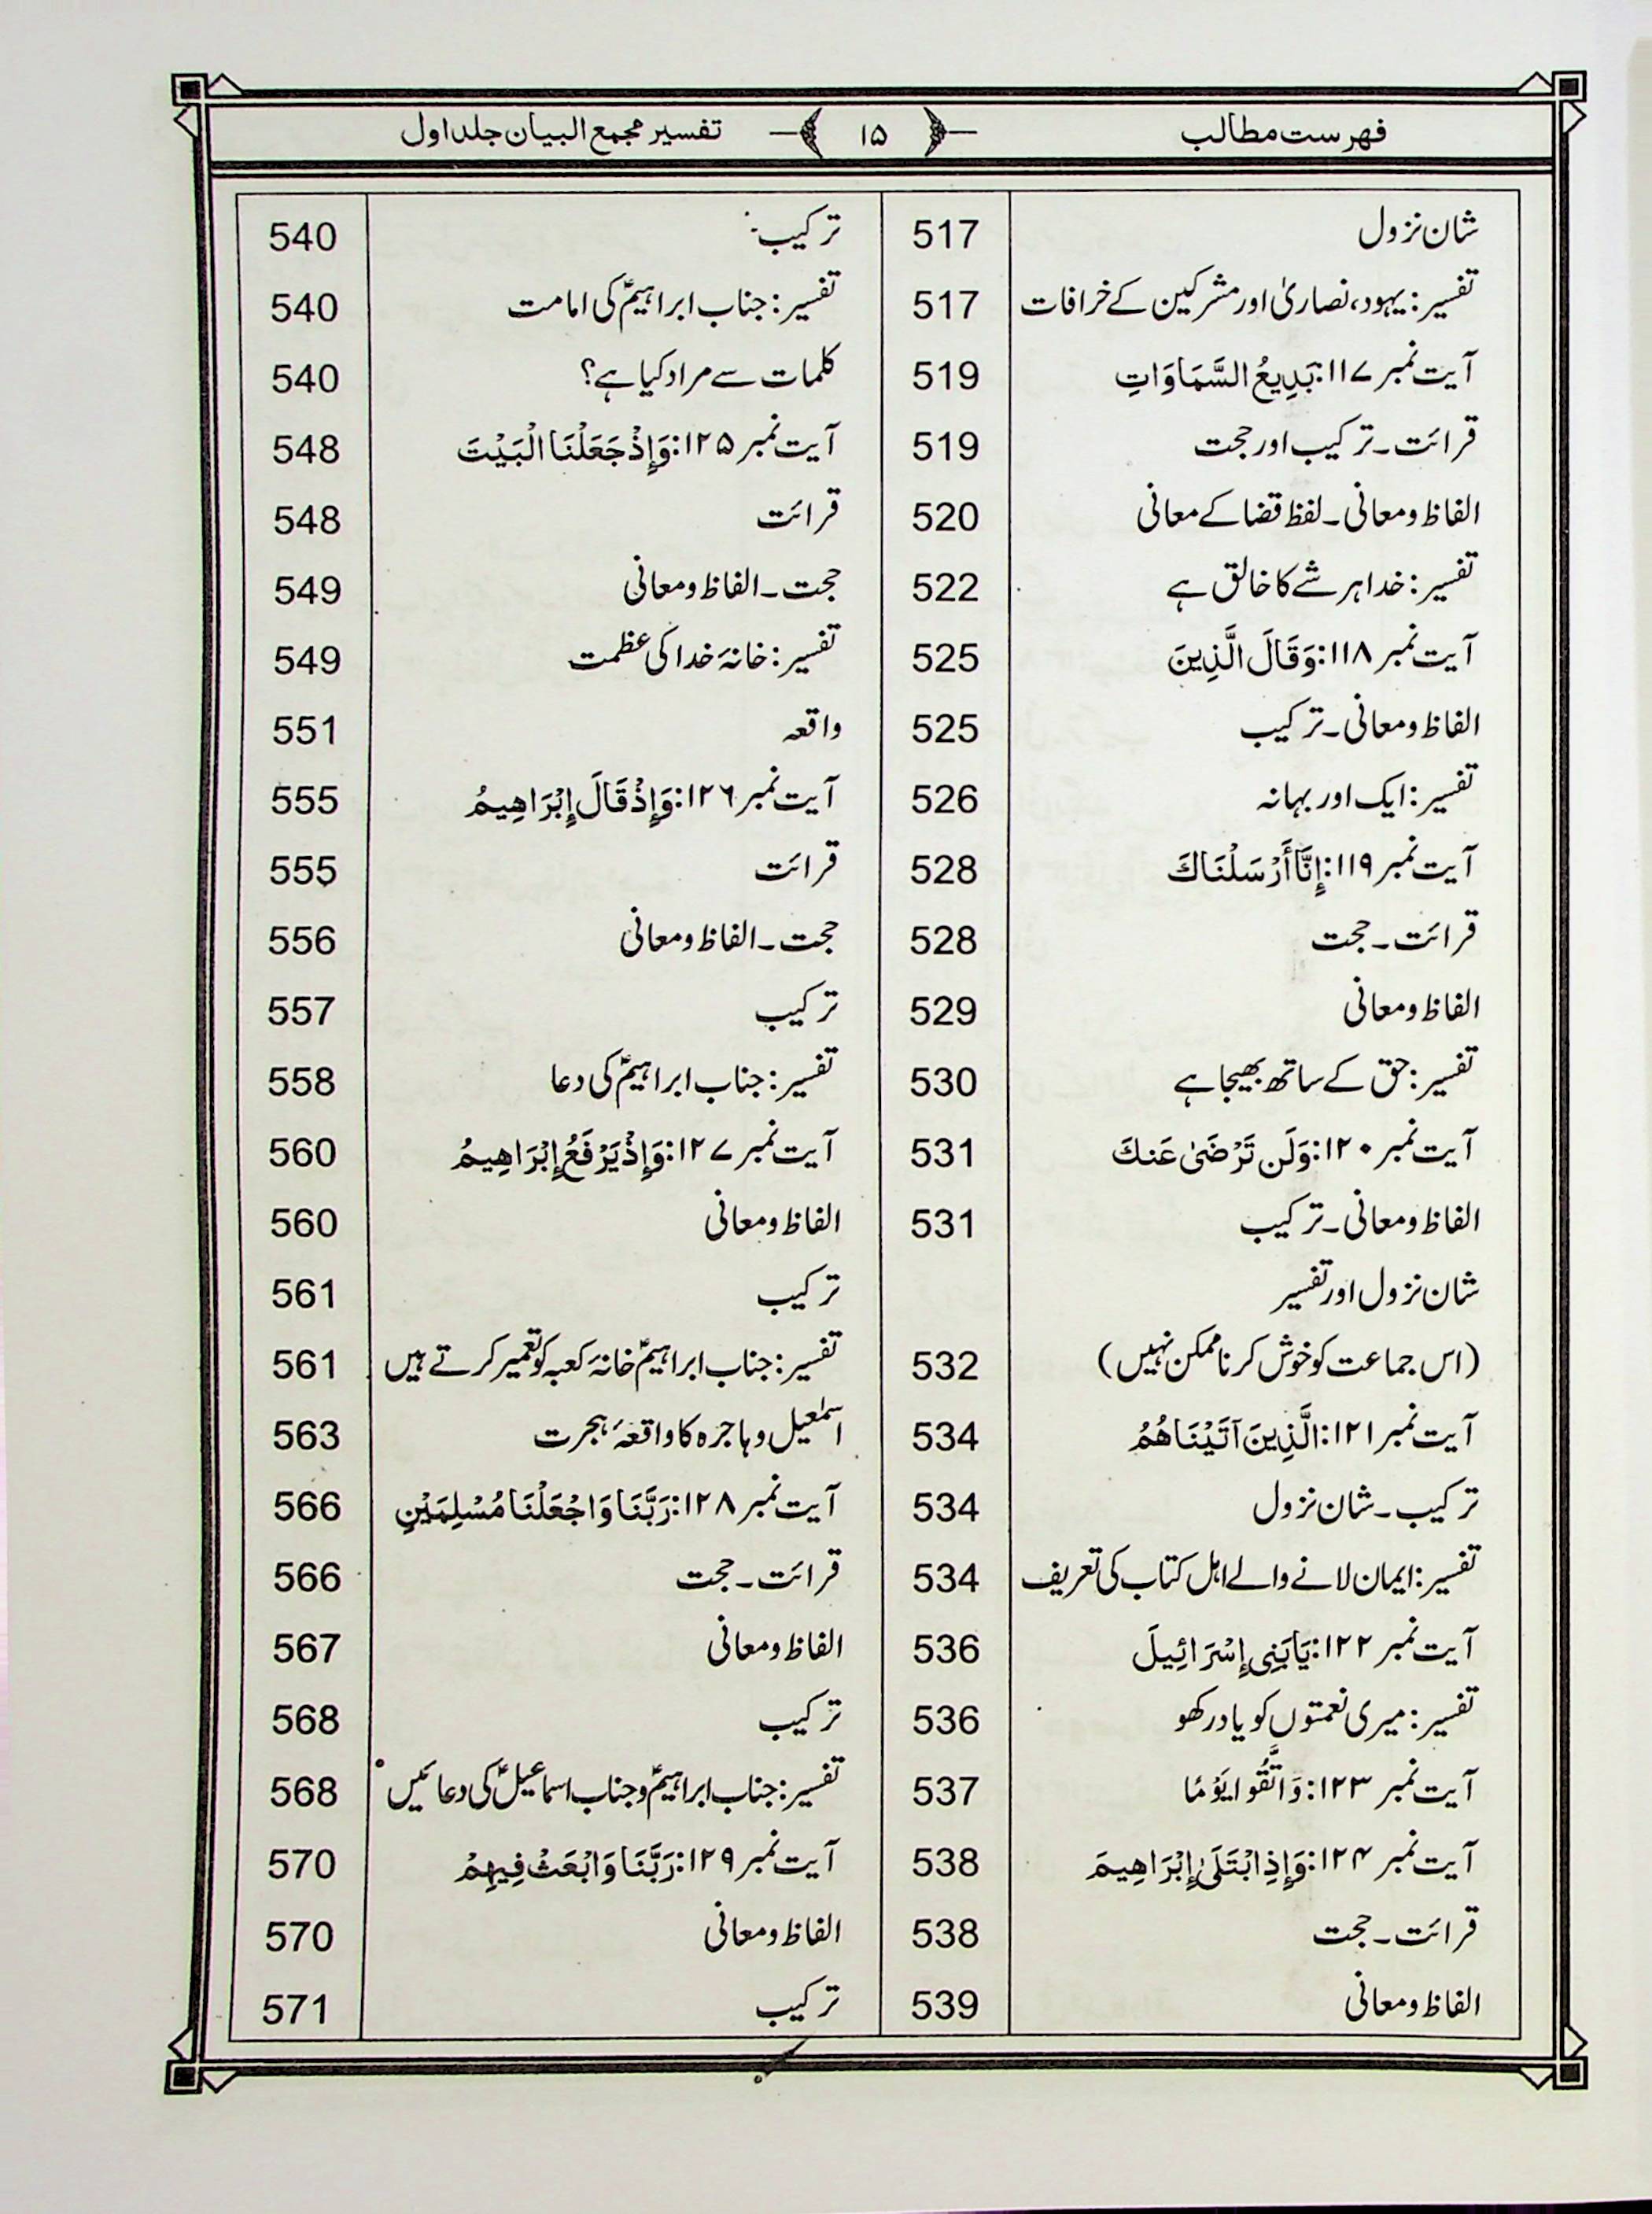 فہرست مطالب ۱۵ تفسیر مجمع البیان جلد اول
شان نزول 517
تفسیر: یہود، نصاریٰ اور مشرکین کے خرافات 517
آیت نمبر ۱۱۷: بَدِيعُ السَّمَاوَاتِ 519
قرائت۔ ترکیب اور حجت 519
الفاظ و معانی۔ لفظ قضا کے معانی 520
تفسیر: خدا ہر شے کا خالق ہے 522
آیت نمبر ۱۱۸: وَقَالَ الَّذِينَ 525
الفاظ و معانی۔ ترکیب 525
تفسیر: ایک اور بہانہ 526
آیت نمبر ۱۱۹: إِنَّا أَرْسَلْنَاكَ 528
قرائت۔ حجت 528
الفاظ و معانی 529
تفسیر: حق کے ساتھ بھیجا ہے 530
آیت نمبر ۱۲۰: وَلَن تَرْضَىٰ عَنكَ 531
الفاظ و معانی۔ ترکیب 531
شان نزول اور تفسیر
(اس جماعت کو خوش کرنا ممکن نہیں) 532
آیت نمبر ۱۲۱: الَّذِينَ آتَيْنَاهُمُ 534
ترکیب۔ شان نزول 534
تفسیر: ایمان لانے والے اہل کتاب کی تعریف 534
آیت نمبر ۱۲۲: يَا بَنِي إِسْرَائِيلَ 536
تفسیر: میری نعمتوں کو یاد رکھو 536
آیت نمبر ۱۲۳: وَاتَّقُوا يَوْمًا 537
آیت نمبر ۱۲۴: وَإِذِ ابْتَلَىٰ إِبْرَاهِيمَ 538
قرائت۔ حجت 538
الفاظ و معانی 539
ترکیب: 540
تفسیر: جناب ابراہیمؑ کی امامت 540
کلمات سے مراد کیا ہے؟ 540
آیت نمبر ۱۲۵: وَإِذْ جَعَلْنَا الْبَيْتَ 548
قرائت 548
حجت۔ الفاظ و معانی 549
تفسیر: خانۂ خدا کی عظمت 549
واقعہ 551
آیت نمبر ۱۲۶: وَإِذْ قَالَ إِبْرَاهِيمُ 555
قرائت 555
حجت۔ الفاظ و معانی 556
ترکیب 557
تفسیر: جناب ابراہیمؑ کی دعا 558
آیت نمبر ۱۲۷: وَإِذْ يَرْفَعُ إِبْرَاهِيمُ 560
الفاظ و معانی 560
ترکیب 561
تفسیر: جناب ابراہیمؑ خانۂ کعبہ کو تعمیر کرتے ہیں 561
اسمٰعیل و ہاجرہ کا واقعۂ ہجرت 563
آیت نمبر ۱۲۸: رَبَّنَا وَاجْعَلْنَا مُسْلِمَيْنِ 566
قرائت۔ حجت 566
الفاظ و معانی 567
ترکیب 568
تفسیر: جناب ابراہیمؑ و جناب اسماعیلؑ کی دعائیں 568
آیت نمبر ۱۲۹: رَبَّنَا وَابْعَثْ فِيهِمْ 570
الفاظ و معانی 570
ترکیب 571